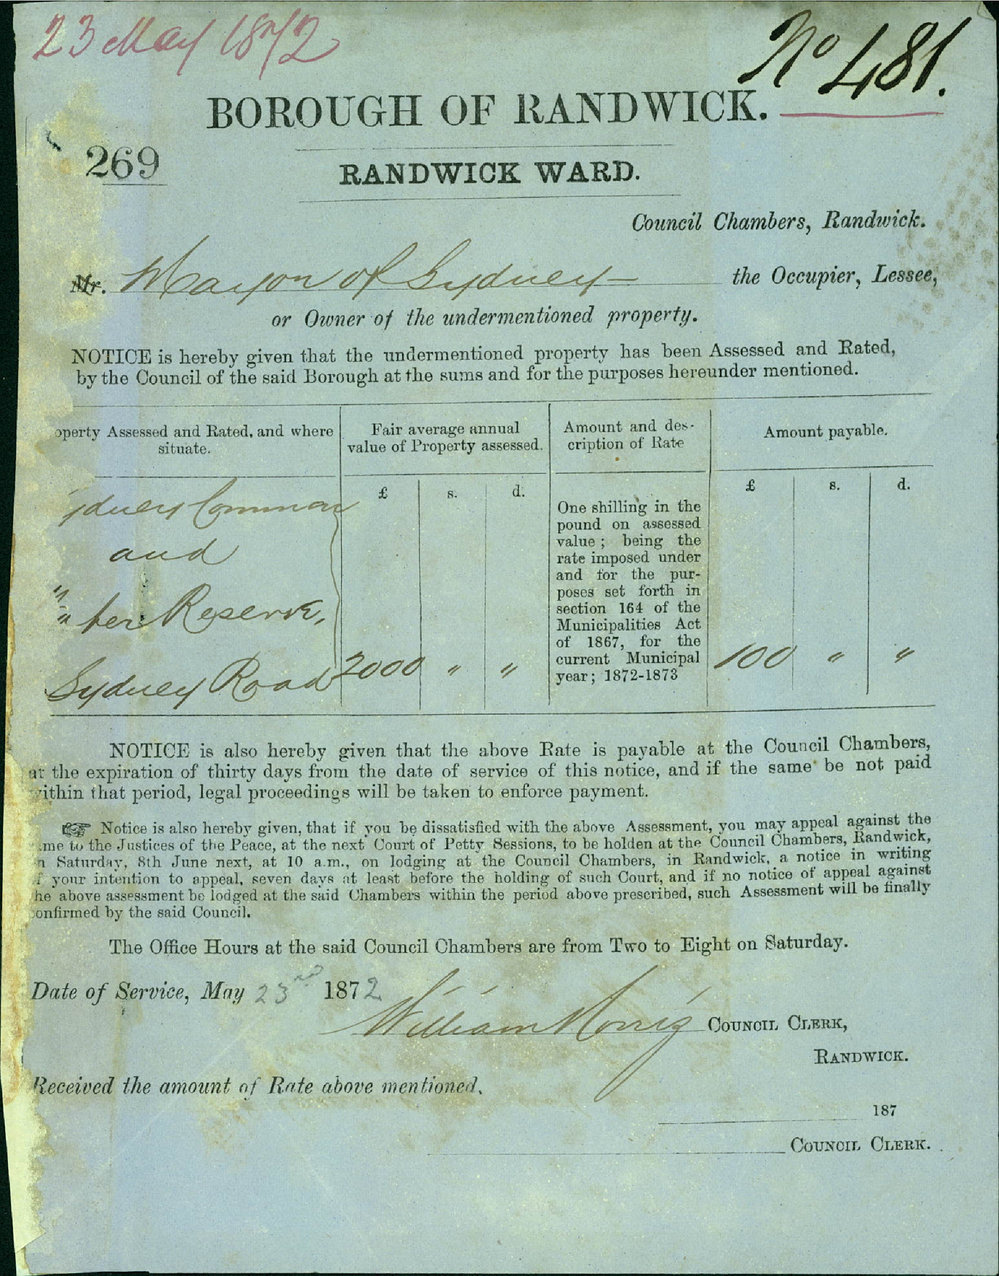 23 May 1872
No 481.
BOROUGH OF RANDWICK.
269
RANDWICK WARD.
Council Chambers, Randwick.
Mr. Mayor of Sydney the Occupier, Lessee,
or Owner of the undermentioned property.
NOTICE is hereby given that the undermentioned property has been Assessed and Rated,
by the Council of the said Borough at the sums and for the purposes hereunder mentioned.
operty Assessed and Rated, and where
situate.
Fair average annual
value of Property assessed.
Amount and des-
cription of Rate
Amount payable.
£ s. d.
£ s. d.
ydney Common
and
ter Reserve,
Sydney Road
2000 " "
One shilling in the
pound on assessed
value; being the
rate imposed under
and for the pur-
poses set forth in
section 164 of the
Municipalities Act
of 1867, for the
current Municipal
year; 1872-1873
100 " "
NOTICE is also hereby given that the above Rate is payable at the Council Chambers,
at the expiration of thirty days from the date of service of this notice, and if the same be not paid
ithin that period, legal proceedings will be taken to enforce payment.
☞ Notice is also hereby given, that if you be dissatisfied with the above Assessment, you may appeal against the
me to the Justices of the Peace, at the next Court of Petty Sessions, to be holden at the Council Chambers, Randwick,
n Saturday, 8th June next, at 10 a.m., on lodging at the Council Chambers, in Randwick, a notice in writing
f your intention to appeal, seven days at least before the holding of such Court, and if no notice of appeal against
he above assessment be lodged at the said Chambers within the period above prescribed, such Assessment will be finally
confirmed by the said Council.
The Office Hours at the said Council Chambers are from Two to Eight on Saturday.
Date of Service, May 23rd 1872
William Norrig COUNCIL CLERK,
RANDWICK.
Received the amount of Rate above mentioned.
187
COUNCIL CLERK.